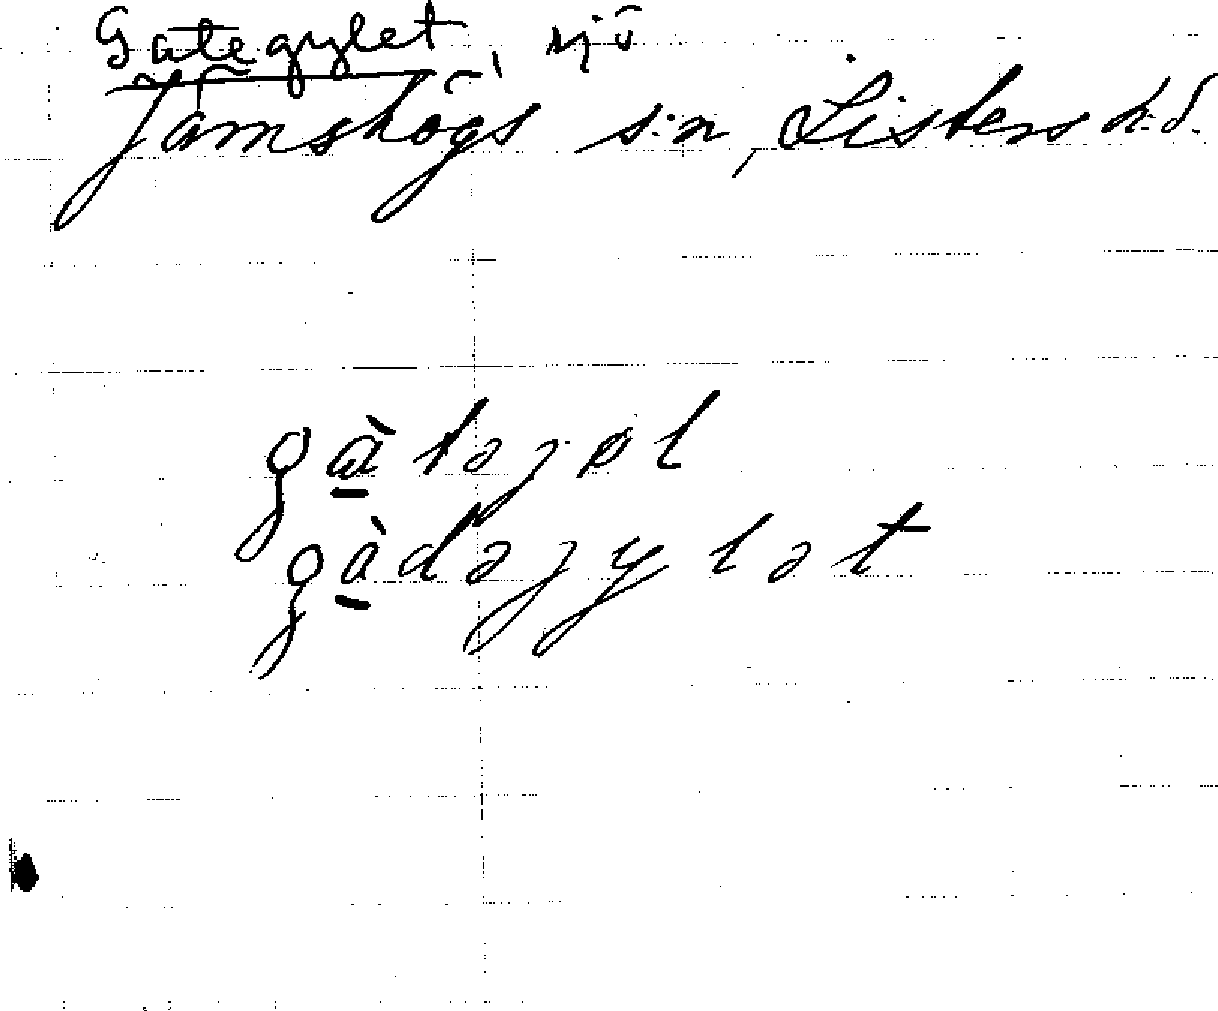 Gategylet, sjö
Jämshögs s:n, Listers h:d.
gàtəjøl
gàdəjylət